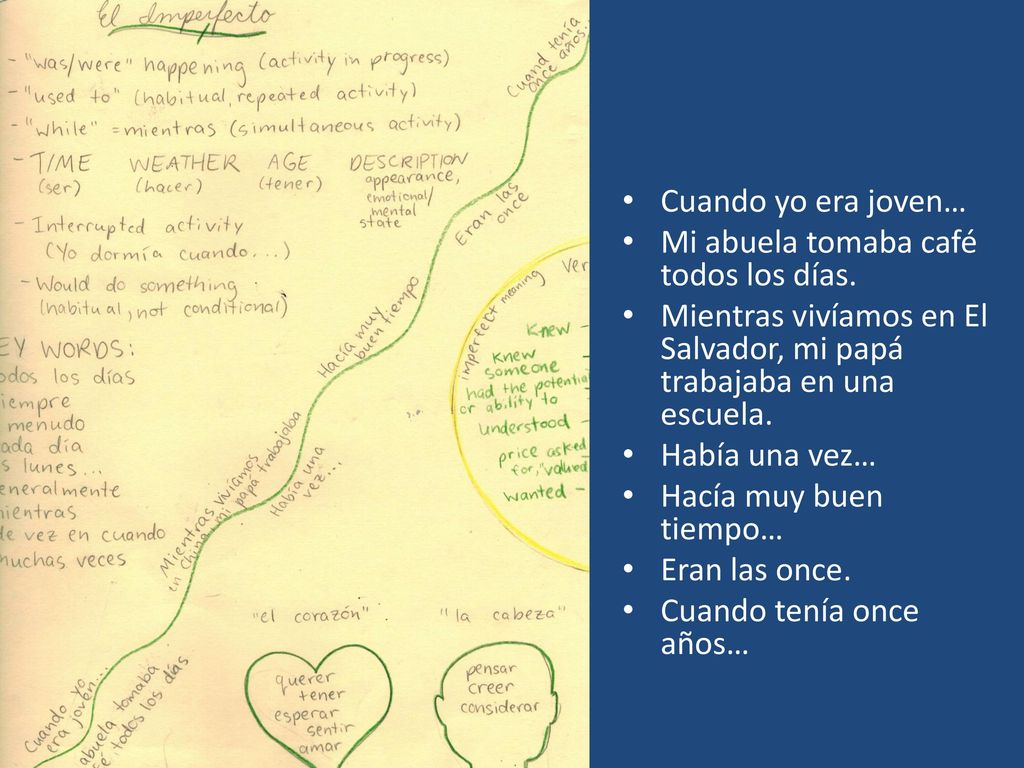 El Imperfecto
- "was/were" happening (activity in progress)
- "used to" (habitual, repeated activity)
- "while" = mientras (simultaneous activity)
- TIME WEATHER AGE DESCRIPTION
(ser) (hacer) (tener) appearance,
emotional/
mental
state
- Interrupted activity
(Yo dormía cuando...)
- Would do something
(habitual, not conditional)
EY WORDS:
odos los días
iempre
menudo
ada día
s lunes...
eneralmente
mientras
de vez en cuando
muchas veces
Cuand tenía
once años...
Eran las
once
Hacía muy
buen tiempo
Había una
vez...
Mientras vivíamos
en China, mi papá trabajaba
Cuando yo
era joven...
abuela tomaba
fé todos los días
imperfect meaning
Ver
Knew -
Knew
someone
had the potential
or ability to
understood -
price asked
for, "valued
wanted -
"el corazón"
querer
tener
esperar
sentir
amar
"la cabeza"
pensar
creer
considerar
• Cuando yo era joven…
• Mi abuela tomaba café
todos los días.
• Mientras vivíamos en El
Salvador, mi papá
trabajaba en una
escuela.
• Había una vez…
• Hacía muy buen
tiempo…
• Eran las once.
• Cuando tenía once
años…